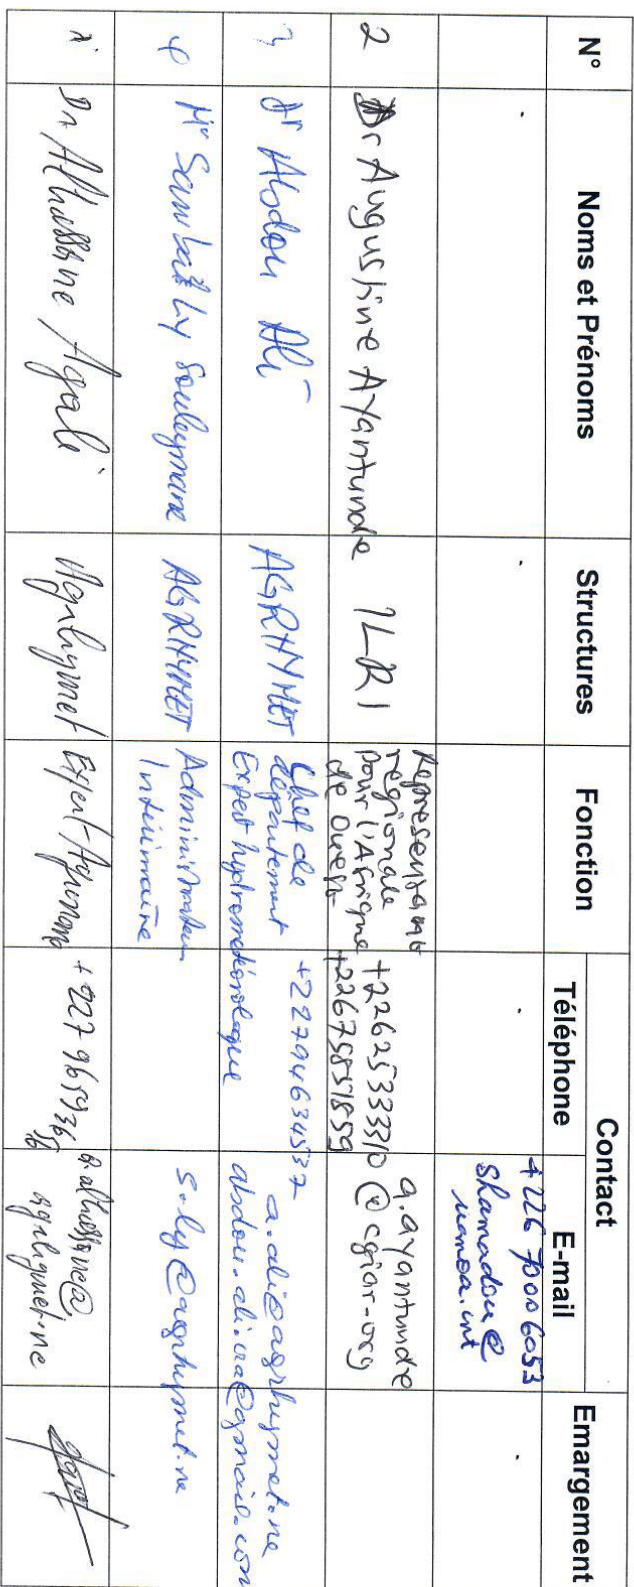 N° Noms et Prénoms Structures Fonction Contact Emargement
Téléphone E-mail
+226 70006053
shamadou@
uemoa.int
2 Dr Augustine Ayantunde ILRI
Representant
régionale
pour l'Afrique
de Ouest
+22625333310
+22675851859
a.ayantunde
@cgiar.org
3 dr Abdou Ali AGRHYMET
Chef de
département
Expert hydrométéorologue
+22794634537
a.ali@agrhymet.ne
abdou.ali.va@gmail.com
4 Mr Sambaï Ly Souleymane AGRHYMET
Administrateur
Intérimaire
s.ly@agrhymet.ne
Dr Alhassane Agali Agrhymet Expert/Agronome
+227 96593656
a.alhassane@
agrhymet.ne